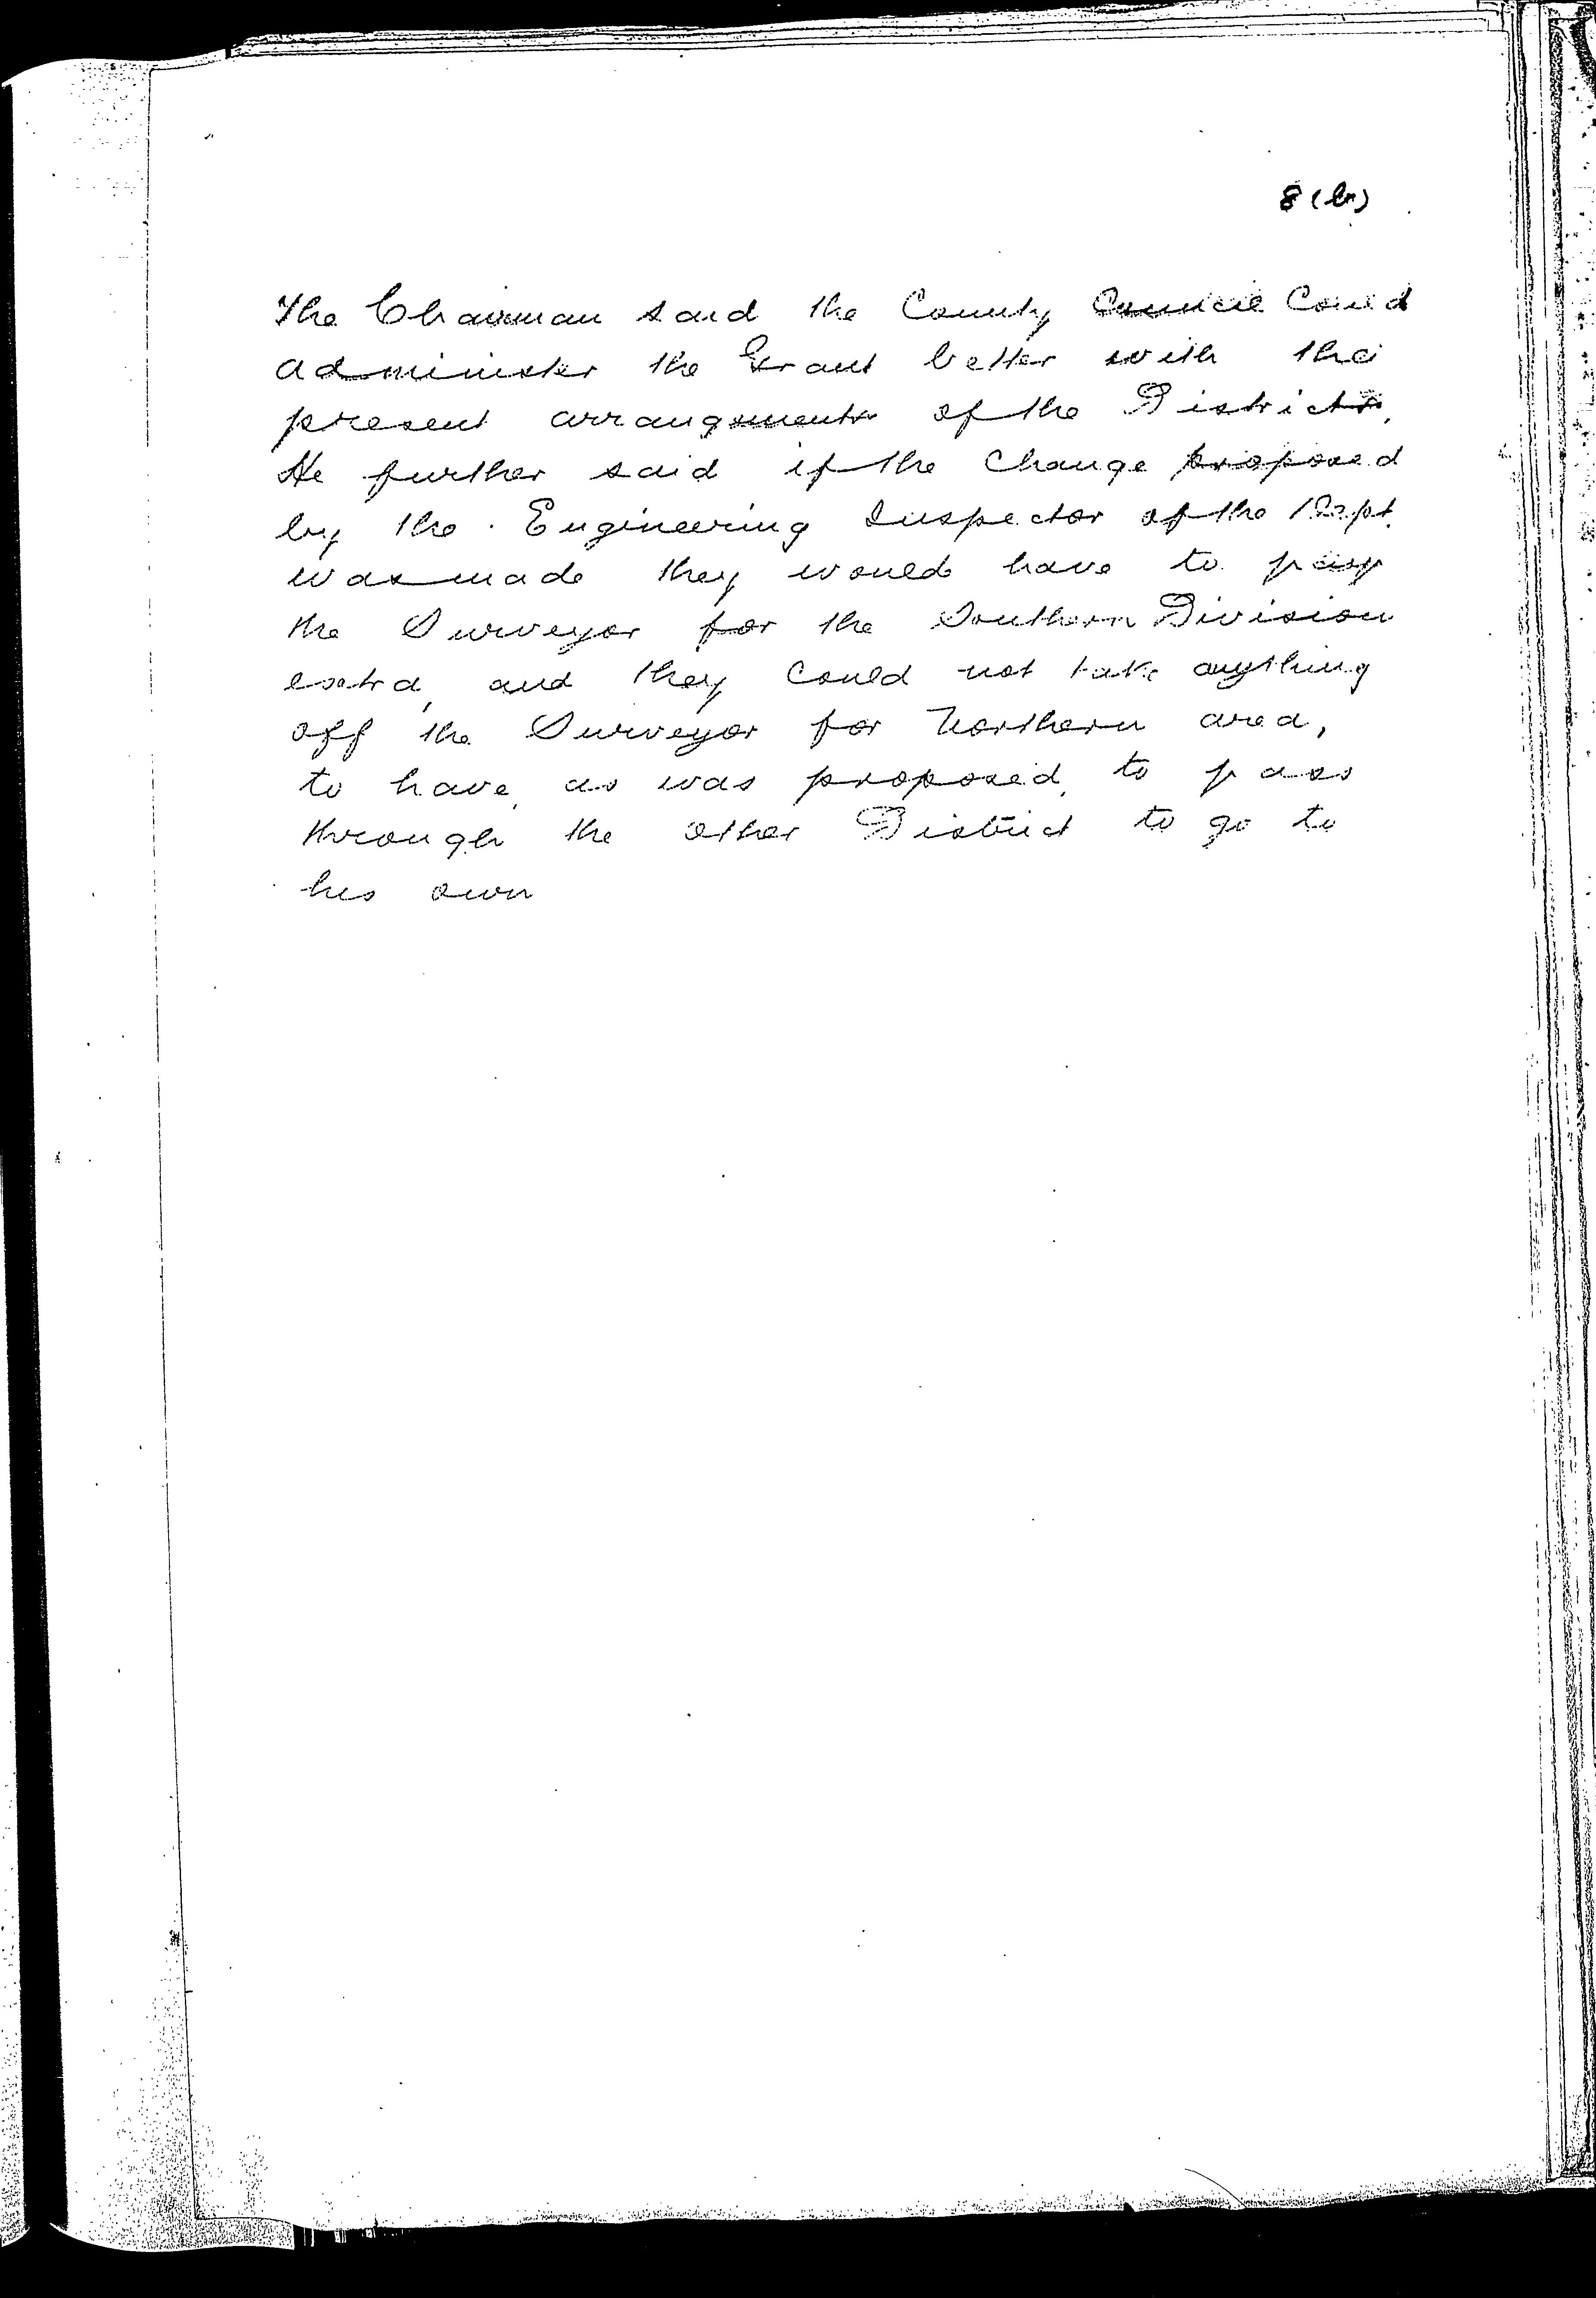 8 (b)
The Chairman said the County Council Could
administer the Grant better with the
present arrangements of the Districts.
He further said if the Change proposed
by the Engineering Inspector of the Dept.
was made they would have to pay
the Surveyor for the Southern Division
extra, and they could not take anything
off the Surveyor for Northern area,
to have, as was proposed, to pass
through the other District to go to
his own